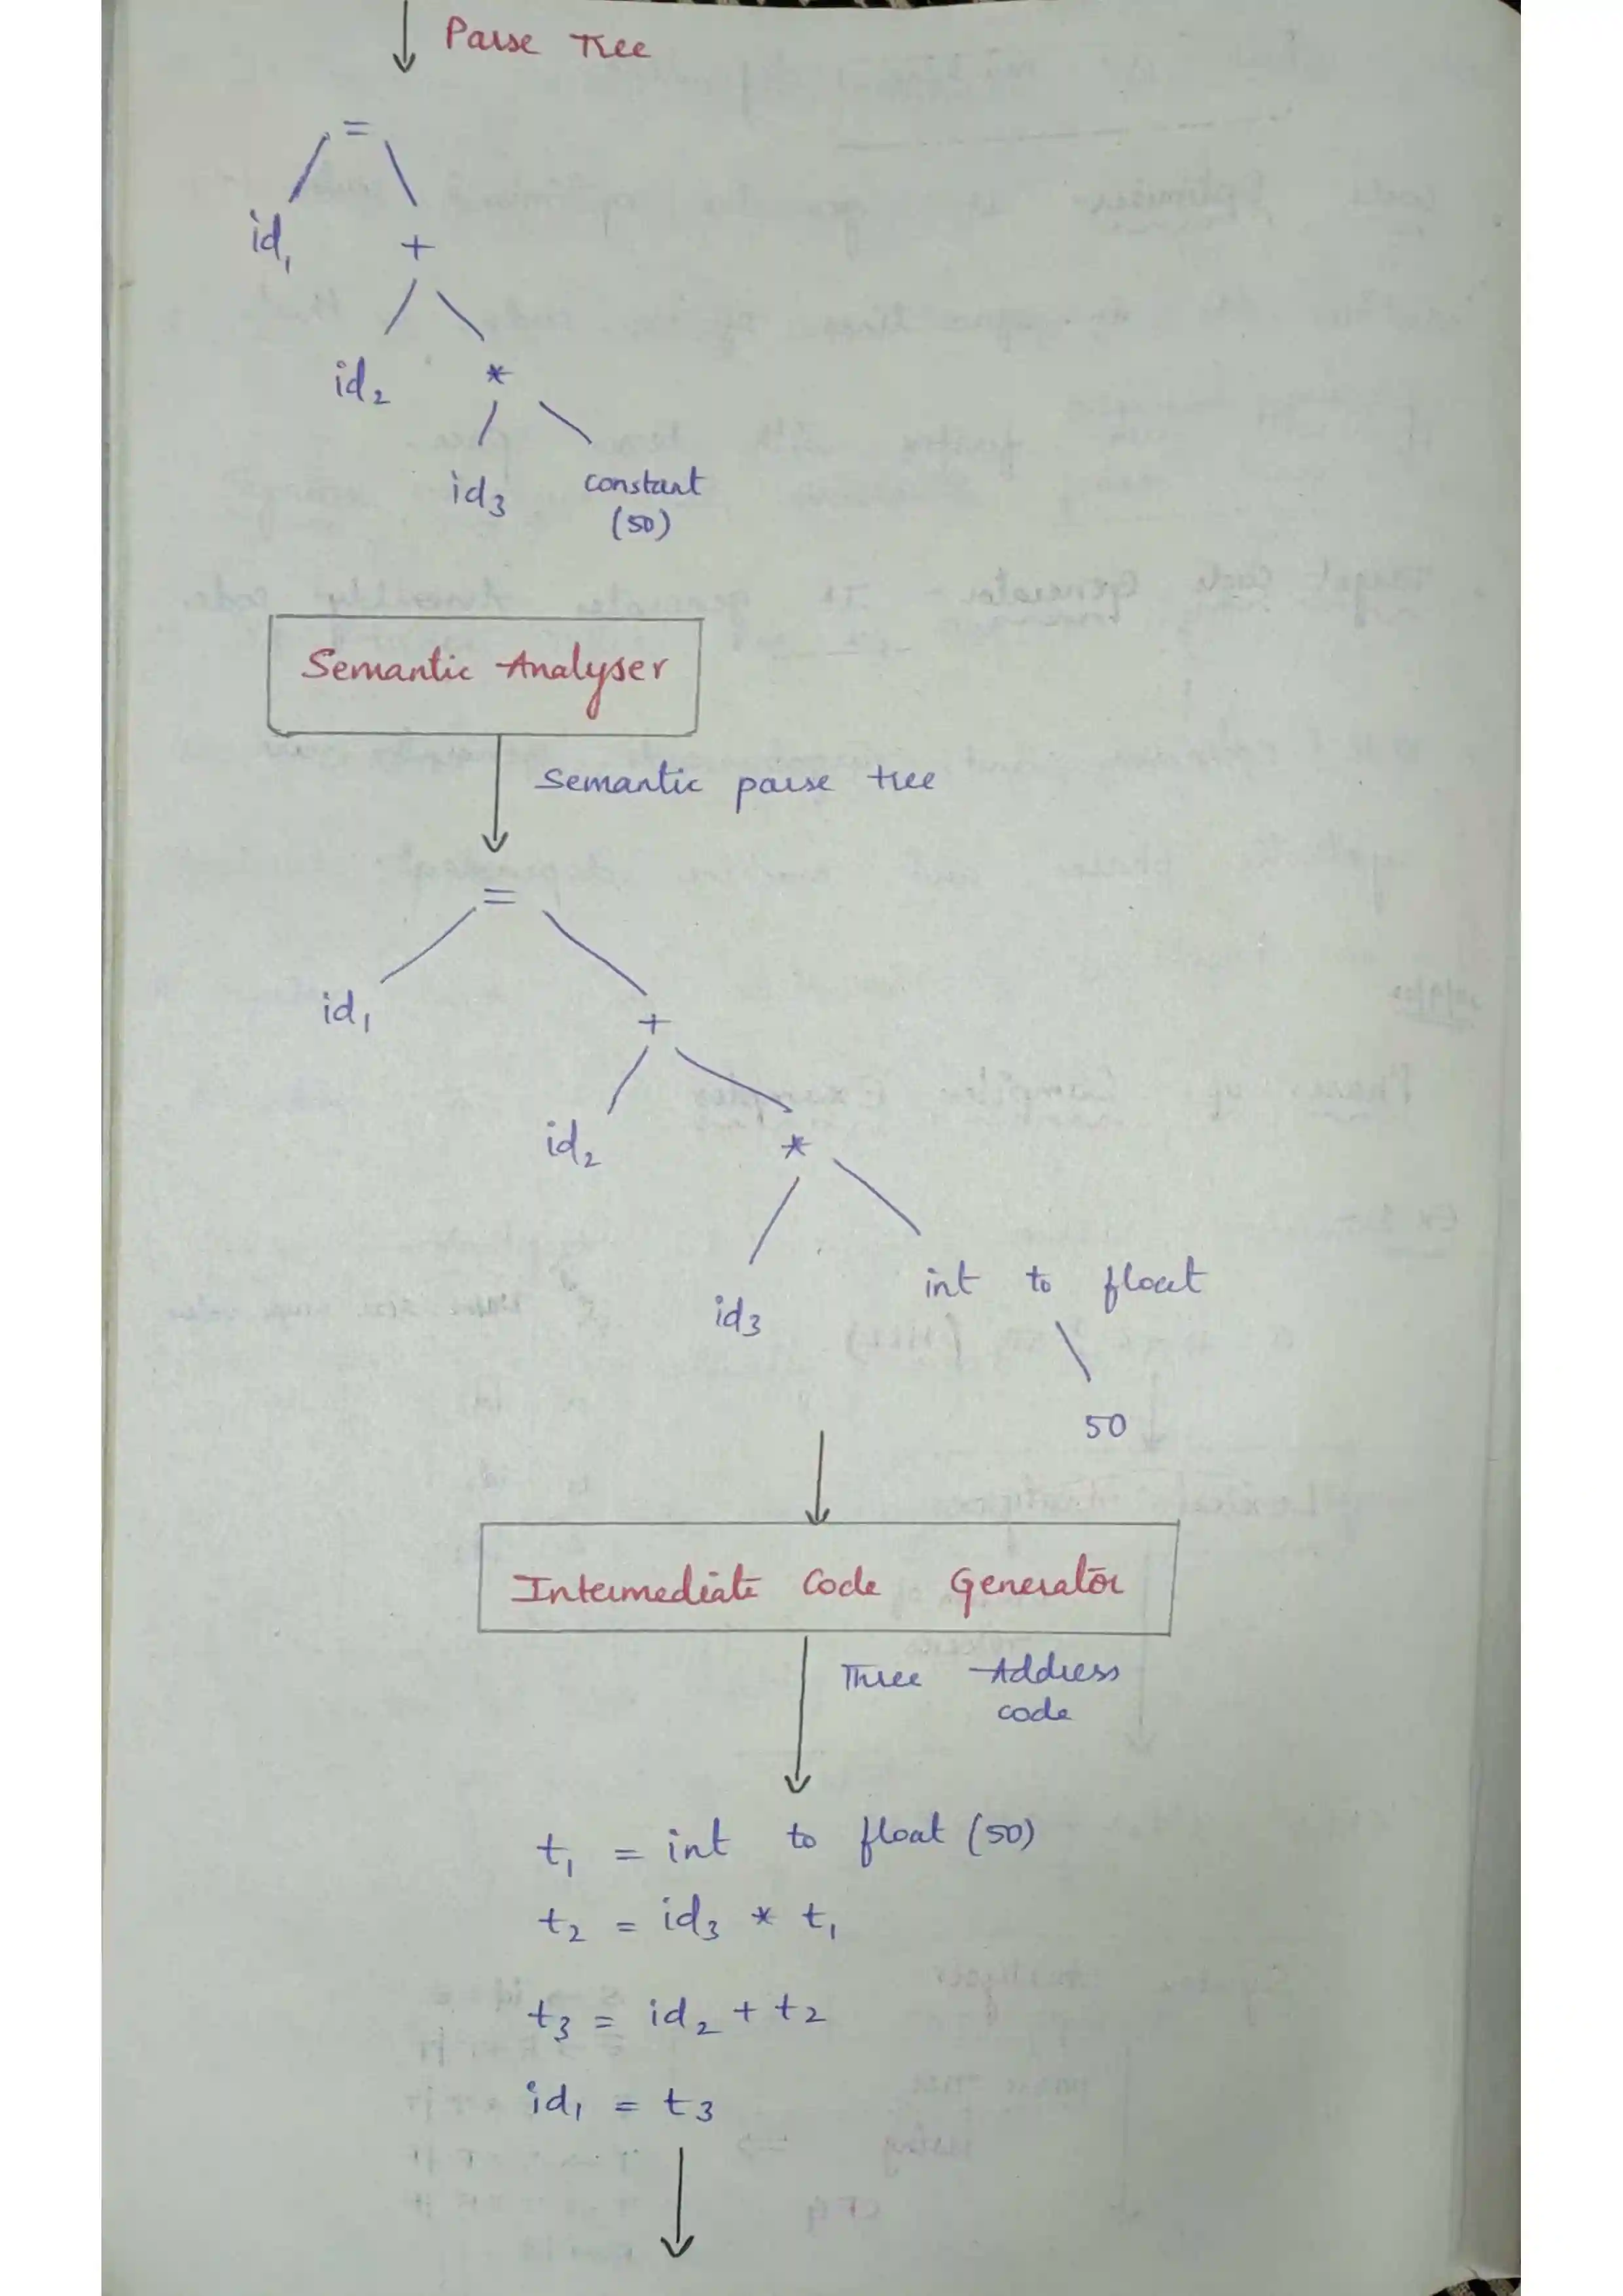 Parse Tree
=
id1 +
id2 *
id3 constant
(50)
Semantic Analyser
Semantic parse tree
=
id1 +
id2 *
id3 int to float
50
Intermediate Code Generator
Three Address
code
t1 = int to float (50)
t2 = id3 * t1
t3 = id2 + t2
id1 = t3